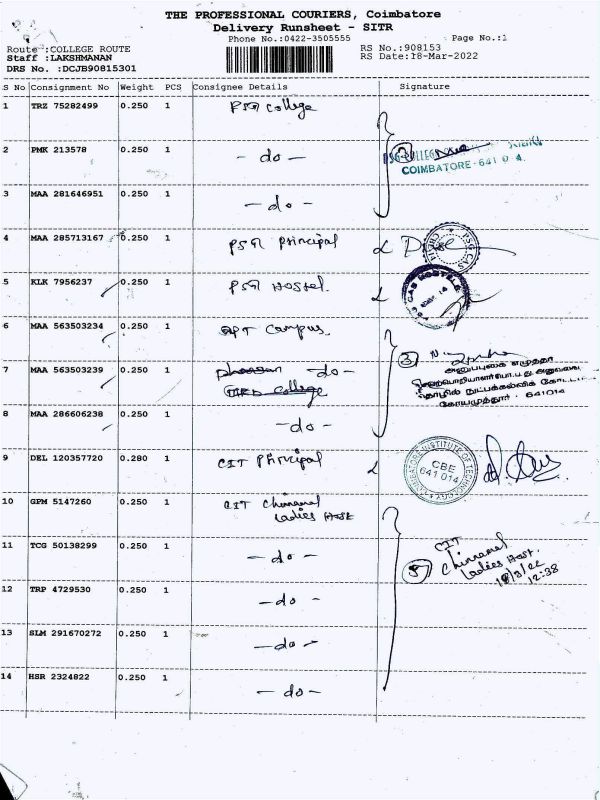 THE PROFESSIONAL COURIERS, Coimbatore
Delivery Runsheet - SITR
Phone No.:0422-3505555 Page No.:1
Route :COLLEGE ROUTE RS No.:908153
Staff :LAKSHMANAN RS Date:18-Mar-2022
DRS No. :DCJB90815301
S No Consignment No Weight PCS Consignee Details Signature
1 TRZ 75282499 0.250 1 PSG College
2 PMK 213578 0.250 1 - do -
COIMBATORE-641 0 4.
3 MAA 281646951 0.250 1 - do -
4 MAA 285713167 0.250 1 PSG Principal
PSG CAS
5 KLK 7956237 0.250 1 PSG Hostel.
6 MAA 563503234 0.250 1 GPT Campus
3
அனுப்புகை எழுத்தர்
7 MAA 563503239 0.250 1 - do -
கோயமுத்தூர் - 641014
8 MAA 286606238 0.250 1 - do -
9 DEL 120357720 0.280 1 CIT Principal
COIMBATORE INSTITUTE OF TECHNOLOGY
CBE
641 014
10 GPM 5147260 0.250 1 CIT Chinnamal
Ladies Host
11 TCG 50138299 0.250 1 - do -
CIT
Chinnamal
Ladies Host.
18/3/22
12:38
5
12 TRP 4729530 0.250 1 - do -
13 SLM 291670272 0.250 1 - do -
14 HSR 2324822 0.250 1 - do -